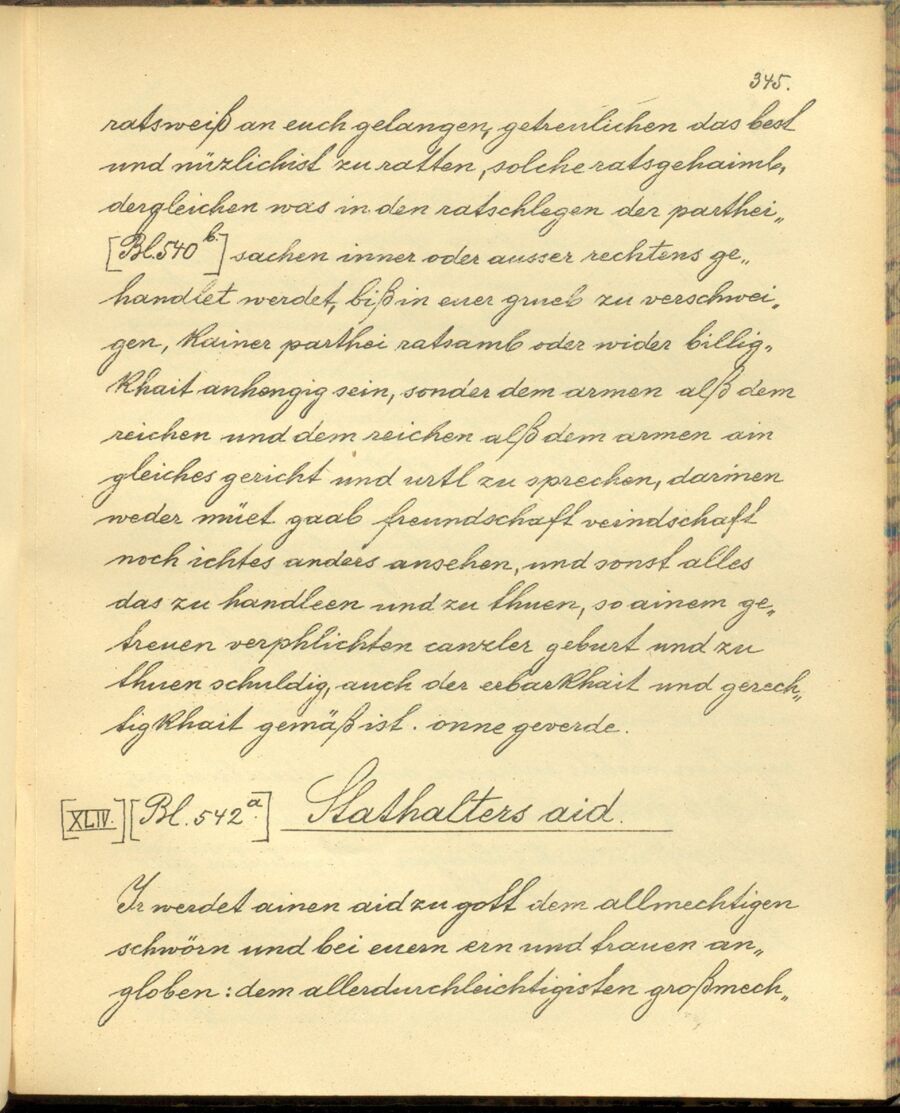 345.
ratsweiß an euch gelangen, getreulichen das best
und nüzlichist zu ratten, solche ratsgehaimb,
dergleichen was in den ratschlegen der parthei„
[Bl. 540 b.] sachen inner oder ausser rechtens ge„
handlet werdet, biß in euer grueb zu verschwei„
gen, kainer parthei ratsamb oder wider billig„
khait anhengig sein, sonder dem armen alß dem
reichen und dem reichen alß dem armen ain
gleiches gericht und urtl zu sprechen, darinen
weder müet gaab freundschaft veindschaft
noch ichtes anders ansehen, und sonst alles
das zu handleen und zu thuen, so ainem ge„
treuen verphlichten canzler geburt und zu
thuen schuldig, auch der erbarkhait und gerech„
tigkhait gemäß ist. onne geverde.
[XLIV.] [Bl. 542 a.] Stathalters aid.
Ir werdet ainen aid zu gott dem allmechtigen
schwörn und bei euern ern und trauen an„
globen: dem allerdurchleichtigisten großmech„